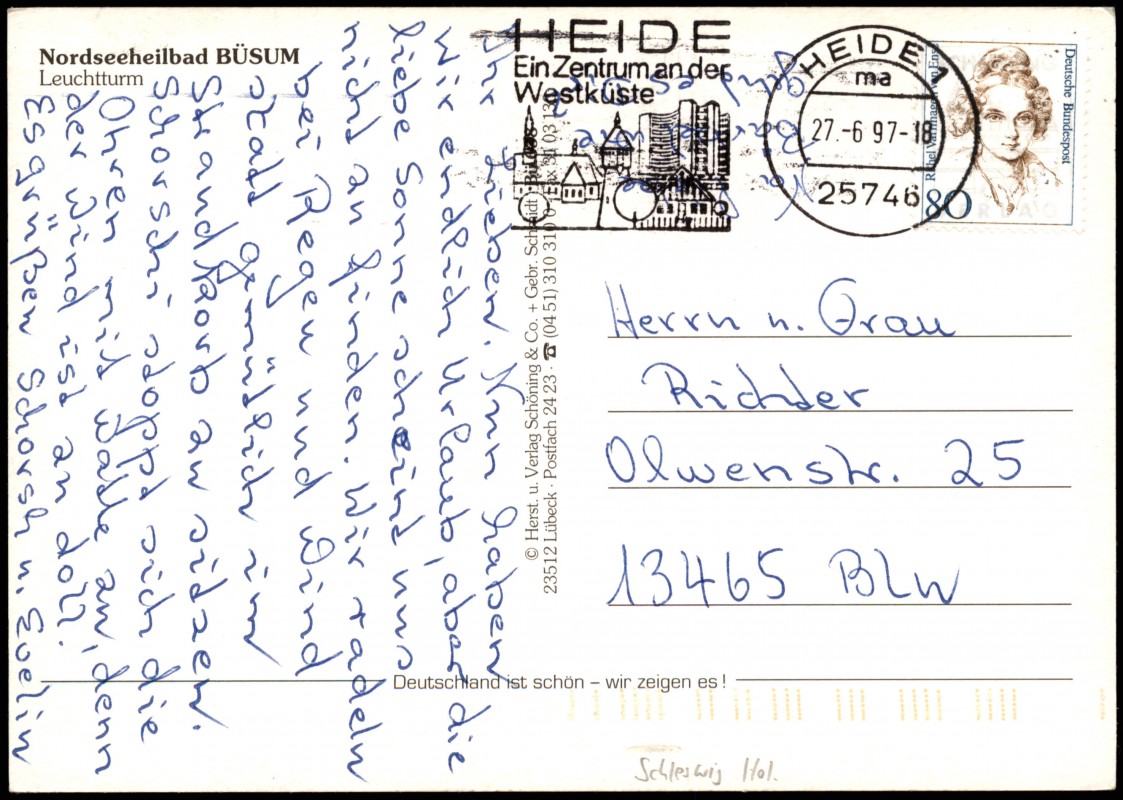 Nordseeheilbad BÜSUM
Leuchtturm
Ihr Lieben. Nun haben
wir endlich Urlaub, aber die
liebe Sonne scheint uns
nicht zu finden. Wir radeln
bei Regen und Wind
statt gemütlich im
Strandkorb zu sitzen.
Schorschi stoppt sich die
Ohren mit Watte zu, denn
der Wind ist zu doll.
Es grüßen Schorsch u. Evelin
© Herst. u. Verlag Schöning & Co. + Gebr. Schmidt
23512 Lübeck · Postfach 24 23 · ☎ (04 51) 310 310
HEIDE
Ein Zentrum an der
Westküste
HEIDE 1
ma
27.-6 97-18
25746
Deutsche Bundespost
Rahel Varnhagen von Ense
80
Herrn u. Frau
Richter
Olwenstr. 25
13465 BLW
Deutschland ist schön – wir zeigen es !
Schleswig Hol.